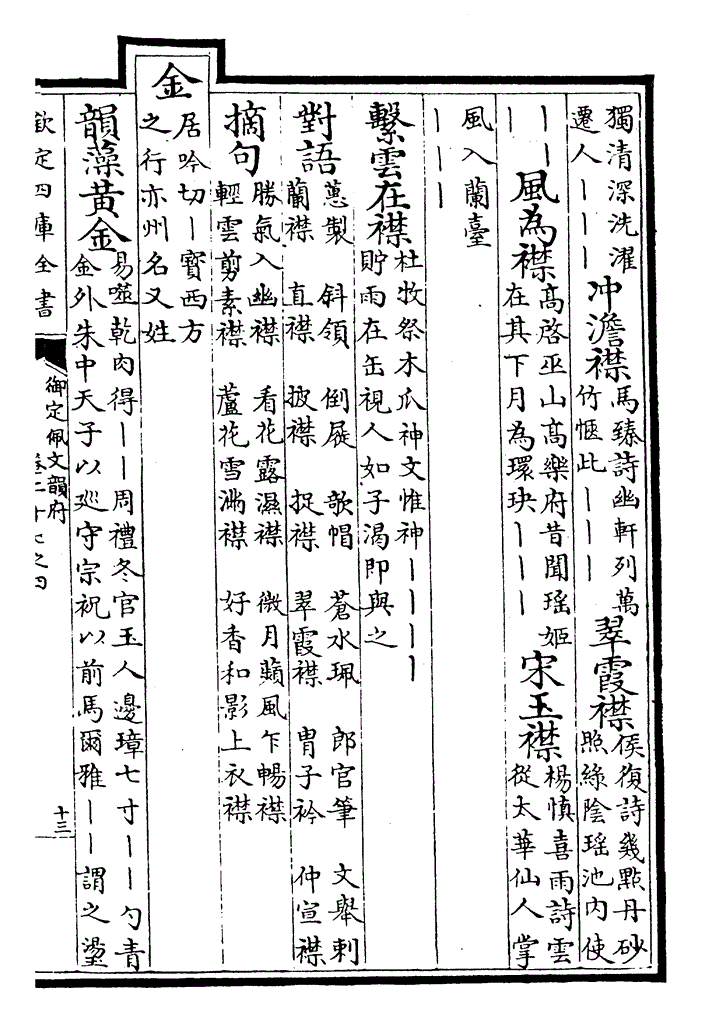 獨清深洗濯
遷人｜｜｜
冲澹襟
馬臻詩幽軒列萬
竹愜此｜｜｜
翠霞襟
侯復詩幾㸃丹砂
照綠陰瑶池内使
｜｜｜
風為襟
髙啓巫山髙樂府昔聞瑶姬
在其下月為環玦｜｜｜
宋玉襟
楊慎喜雨詩雲
從太華仙人掌
風入蘭臺
｜｜｜
繫雲在襟
杜牧祭木瓜神文惟神｜｜｜｜
貯雨在缶視人如子渴即與之
對語
蕙製 斜領 倒屐 欹帽 蒼水珮 郎官筆 文舉刺
蘭襟 直襟 披襟 捉襟 翠霞襟 胄子衿 仲宣襟
摘句
勝氣入幽襟 看花露濕襟 微月蘋風乍暢襟
輕雲剪素襟 蘆花雪滿襟 好香和影上衣襟
金
居吟切｜寳西方
之行亦州名又姓
韻藻黄金
易噬乾肉得｜｜周禮冬官玉人邊璋七寸｜｜勺青
金外朱中天子以廵守宗祝以前馬爾雅｜｜謂之璗
欽定四庫全書
御定佩文韻府
卷二十七之四
十三